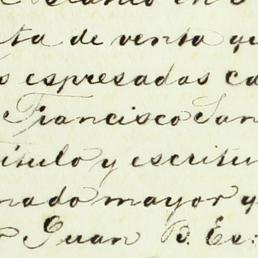 ta de venta qu
s espresadas ca
Francisco San
itulo y escritu
nado mayor y
Juan B. Es